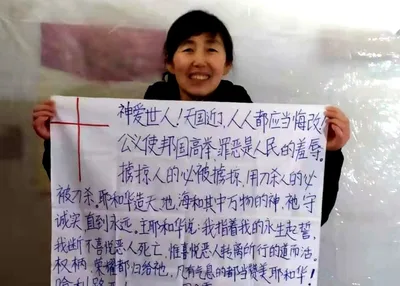 神爱世人！天国近了，人人都应当悔改！
公义使邦国高举，罪恶是人民的羞辱。
掳掠人的必被掳掠，用刀杀人的必
被刀杀。耶和华造天、地、海和其中万物的神，祂守
诚实直到永远。主耶和华说：我指着我的永生起誓
我断不喜悦恶人死亡，惟喜悦恶人转离所行的道而活。
权柄，荣耀都归给祂，凡有气息的都当赞美耶和华！